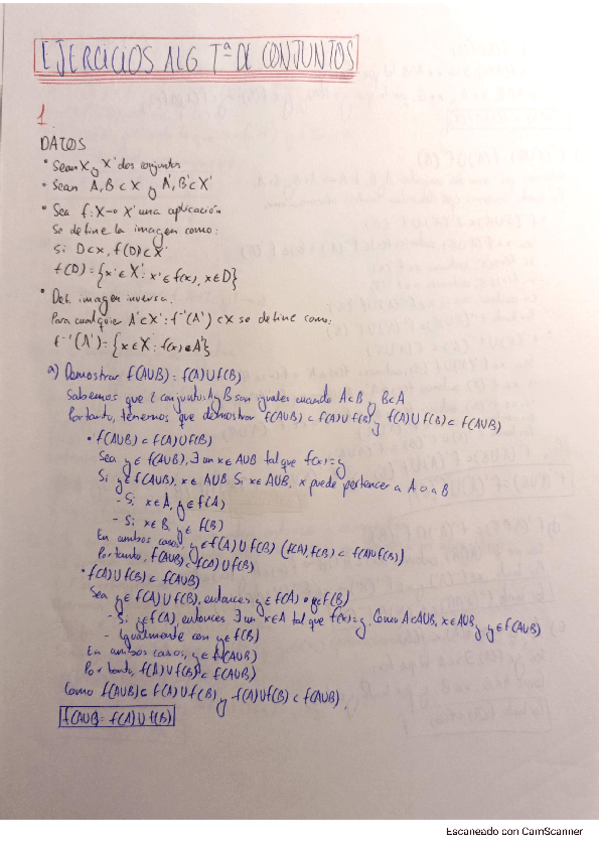 EJERCICIOS ALG Tª DE CONJUNTOS
1.
DATOS
• Sean X y X' dos conjuntos
• Sean A, B ⊂ X y A', B' ⊂ X'
• Sea f: X → X' una aplicación
Se define la imagen como:
Si D⊂X, f(D)⊂X'
f(D) = {x' ∈ X' : x' ∈ f(x), x∈D}
• Def. imagen inversa.
Para cualquier A'⊂X' : f⁻¹(A') ⊂X se define como:
f⁻¹(A') = {x∈X : f(x)∈A'}
a) Demostrar f(A∪B) = f(A)∪f(B)
Sabemos que 2 conjuntos A y B son iguales cuando A⊂B y B⊂A
Por tanto, tenemos que demostrar f(A∪B) ⊂ f(A)∪f(B) y f(A)∪f(B) ⊂ f(A∪B)
• f(A∪B) ⊂ f(A)∪f(B)
Sea y∈ f(A∪B), ∃ un x∈ A∪B tal que f(x)=y
Si y∈f(A∪B), x∈ A∪B. Si x∈ A∪B, x puede pertenecer a A o a B
- Si x∈A, y∈f(A)
- Si x∈B, y∈ f(B)
En ambos casos, y∈f(A)∪f(B) (f(A), f(B) ⊂ f(A)∪f(B))
Por tanto, f(A∪B) ⊂ f(A)∪f(B)
• f(A)∪f(B) ⊂ f(A∪B)
Sea y∈ f(A)∪f(B), entonces y∈ f(A) o y∈f(B)
- Si y∈f(A), entonces ∃ un x∈A tal que f(x)=y. Como A⊂A∪B, x∈A∪B, y y∈f(A∪B)
- Igualmente con y∈f(B)
En ambos casos, y∈f(A∪B)
Por tanto, f(A)∪f(B) ⊂ f(A∪B)
Como f(A∪B)⊂ f(A)∪f(B) y f(A)∪f(B) ⊂ f(A∪B),
f(A∪B = f(A)∪f(B)
Escaneado con CamScanner